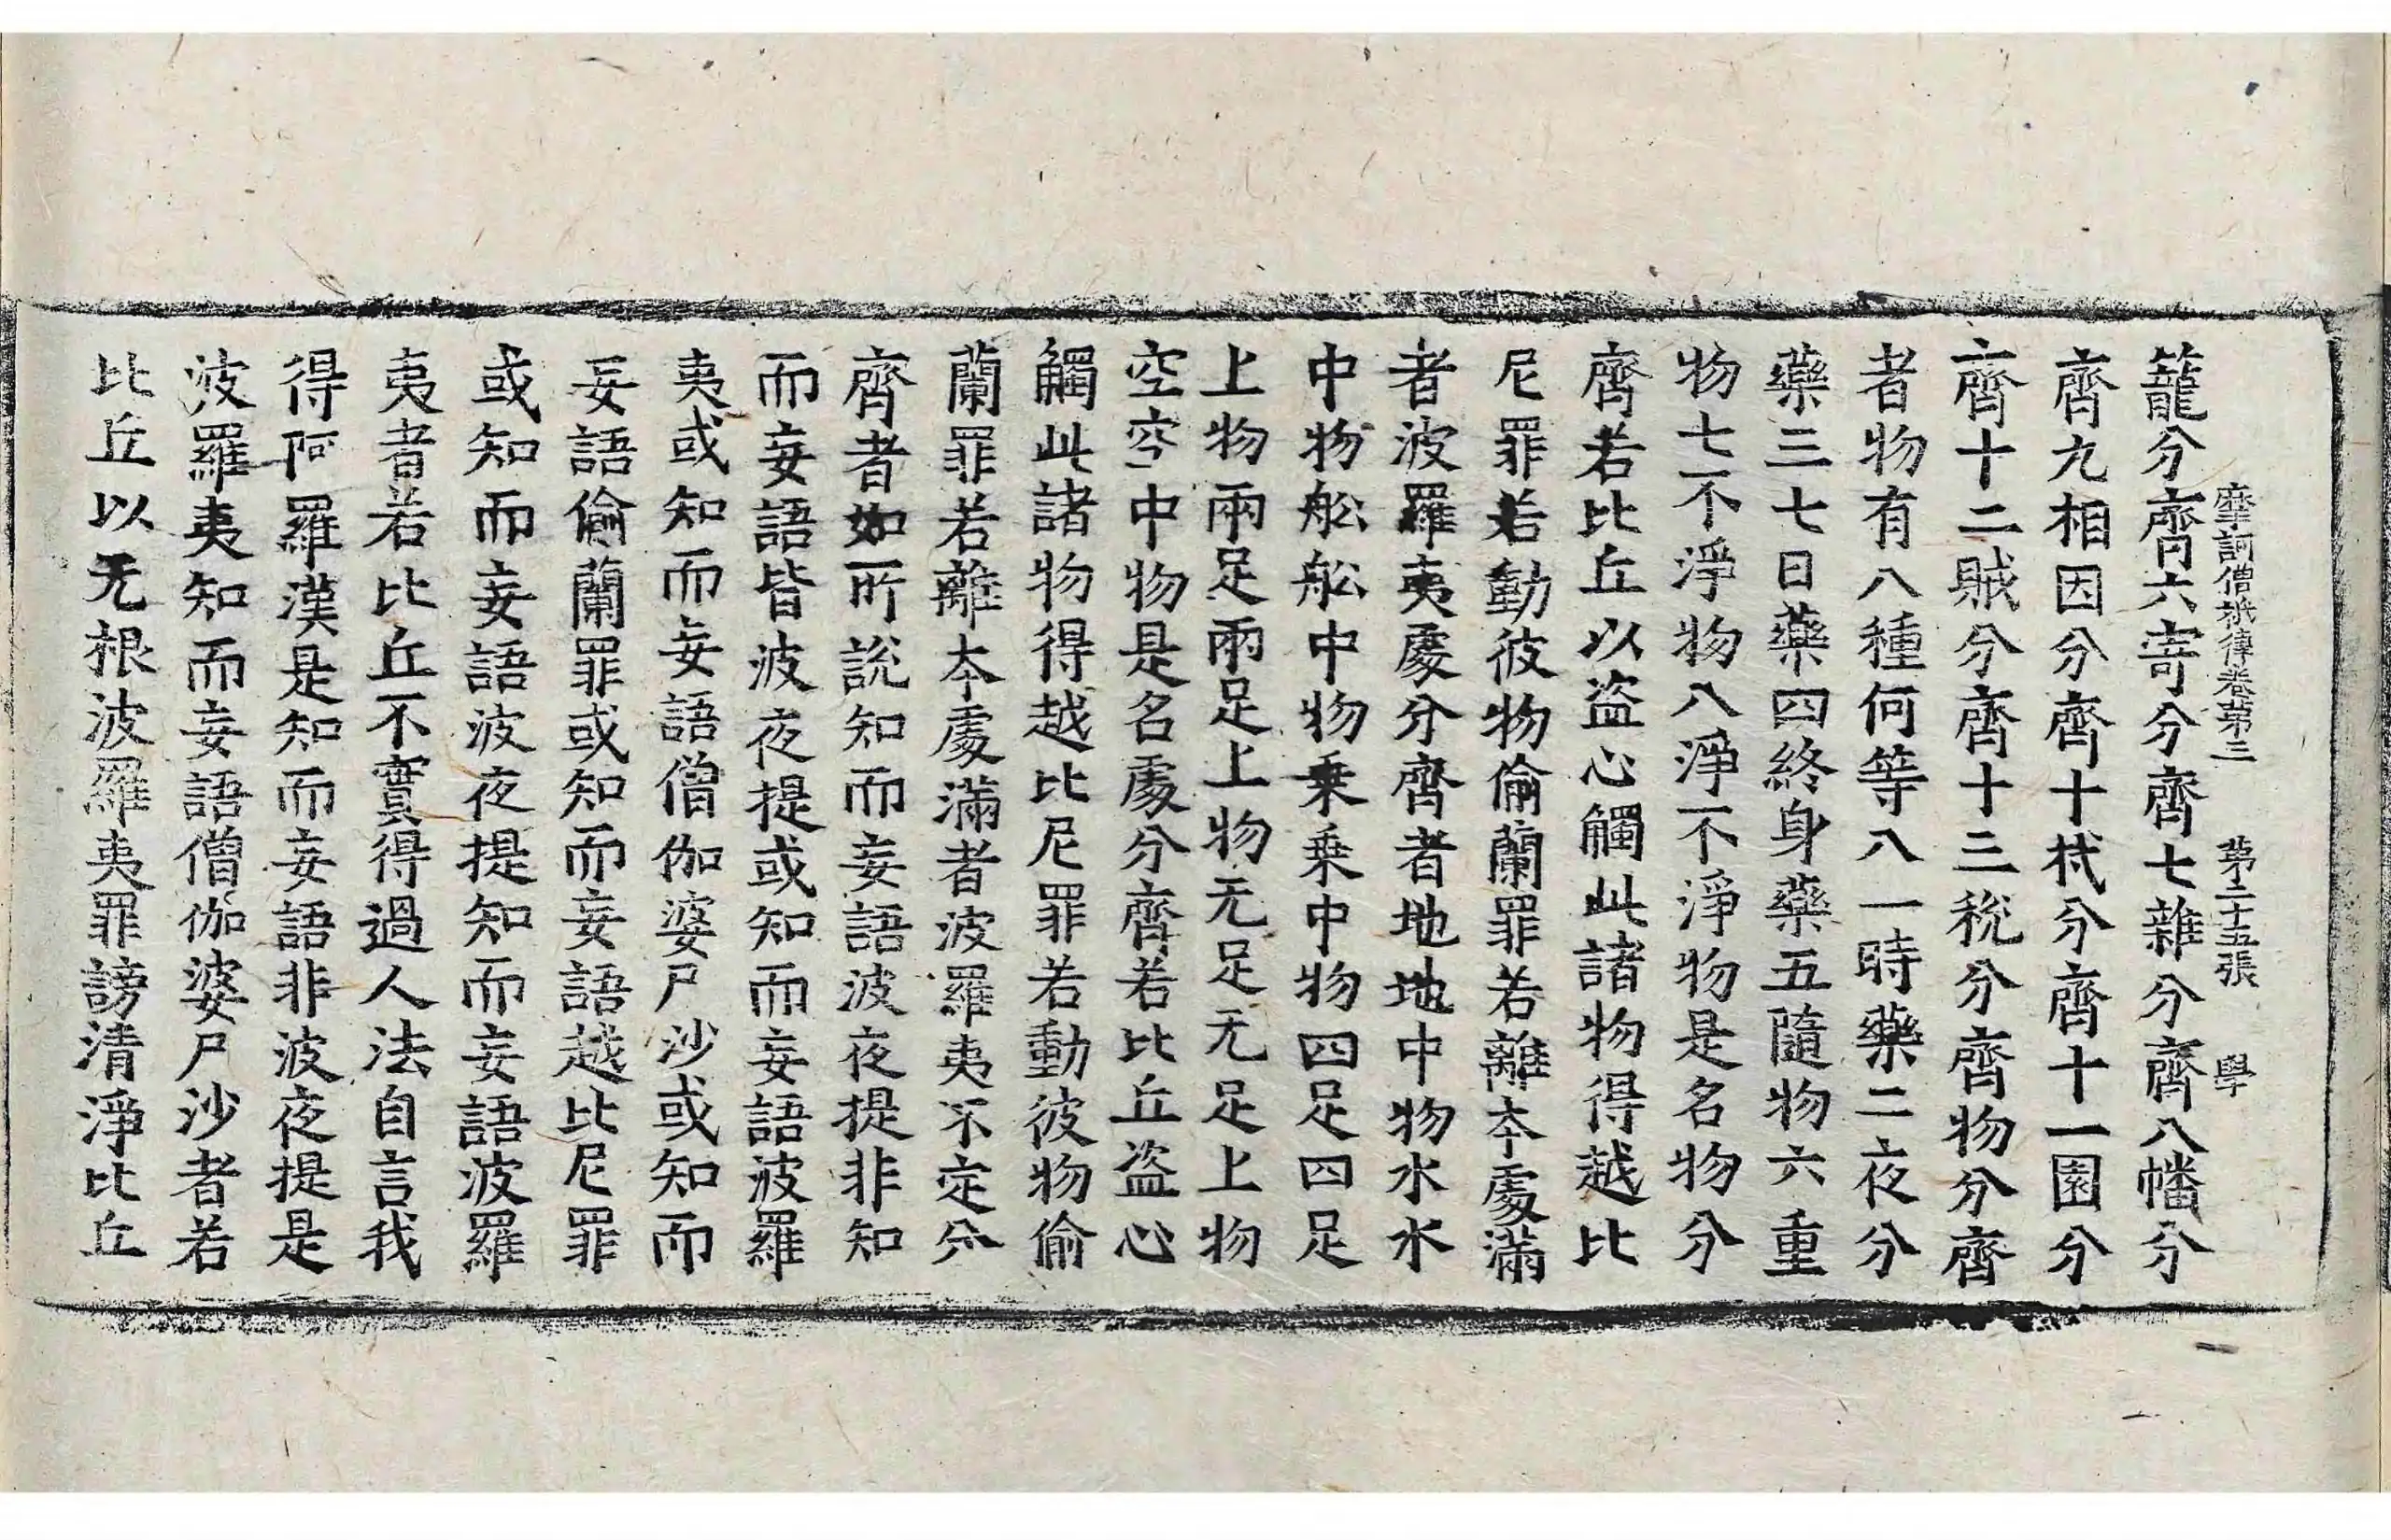 摩訶僧祇律卷第三　第二十五張　學
籠分齊六寄分齊七雜分齊八幡分
齊九相因分齊十杙分齊十一園分
齊十二賊分齊十三稅分齊物分齊
者物有八種何等八一時藥二夜分
藥三七日藥四終身藥五隨物六重
物七不淨物八淨不淨物是名物分
齊若比丘以盜心觸此諸物得越比
尼罪若動彼物偷蘭罪若離本處滿
者波羅夷處分齊者地地中物水水
中物舩舩中物乗乗中物四足四足
上物兩足兩足上物无足无足上物
空空中物是名處分齊若比丘盜心
觸此諸物得越比尼罪若動彼物偷
蘭罪若離本處滿者波羅夷不定分
齊者如所說知而妄語波夜提非知
而妄語皆波夜提或知而妄語波羅
夷或知而妄語僧伽婆尸沙或知而
妄語偷蘭罪或知而妄語越比尼罪
或知而妄語波夜提知而妄語波羅
夷者若比丘不實得過人法自言我
得阿羅漢是知而妄語非波夜提是
波羅夷知而妄語僧伽婆尸沙者若
比丘以无根波羅夷罪謗清淨比丘